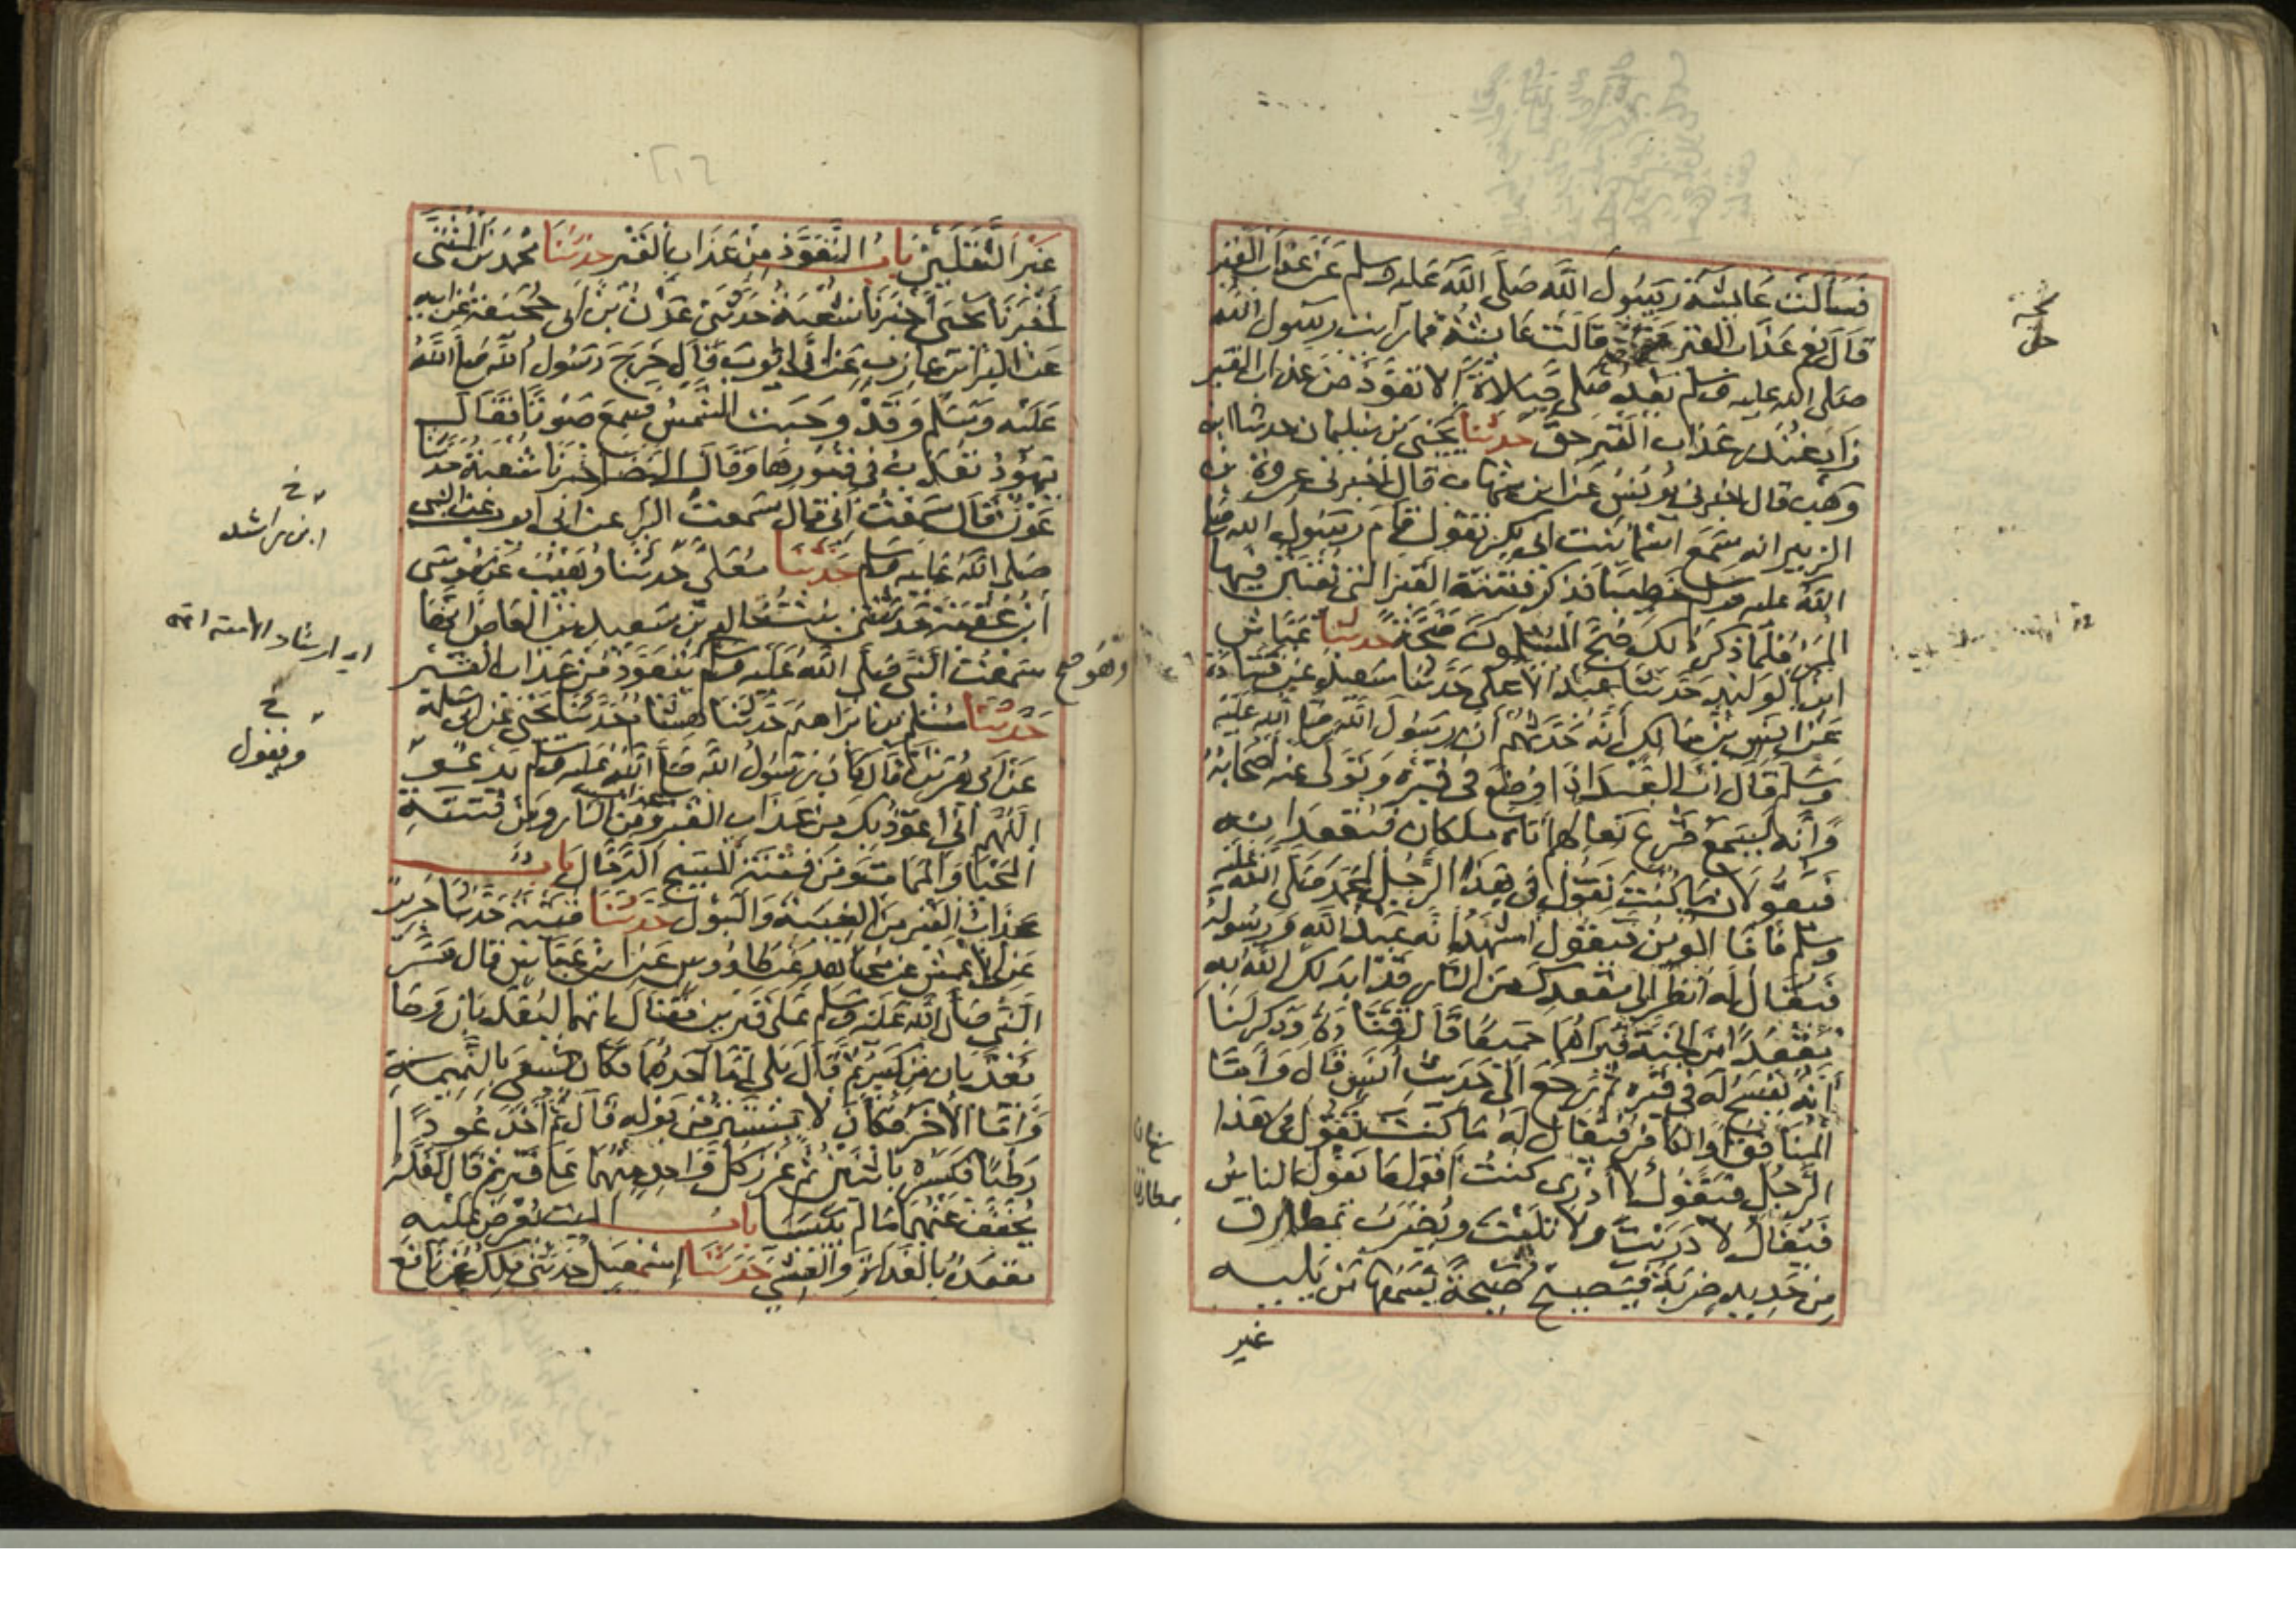 فسألت عائشة رسول الله صلى الله عليه وسلم عن عذاب القبر
قال نعم عذاب القبر قالت عائشة فما رأيت رسول الله
صلى الله عليه وسلم بعد صلى صلاة الا تعوذ من عذاب القبر
زاد غندر عذاب القبر حق حدثنا يحيى بن سليمان حدثنا ابن
وهب قال اخبرني يونس عن ابن شهاب قال اخبرني عروة بن
الزبير انه سمع اسما بنت ابي بكر تقول قام رسول الله صلى
الله عليه وسلم خطيبا فذكر فتنة القبر التي يفتتن فيها
المرء فلما ذكر ذلك ضج المسلمون ضجة حدثنا عياش
ابن الوليد حدثنا عبد الاعلى حدثنا سعيد عن قتادة
عن انس بن مالك أنه حدثهم أن رسول الله صلى الله عليه
وسلم قال ان العبد اذا وضع في قبره وتولى عنه اصحابه
وانه ليسمع قرع نعالهم اتاه ملكان فيقعدانه
فيقولان ما كنت تقول في هذا الرجل لمحمد صلى الله عليه
وسلم فاما المومن فيقول اشهد انه عبد الله ورسوله
فيقال له انظر الى مقعدك من النار قد ابدلك الله به
مقعدا من الجنة فيراهما جميعا قال قتادة وذكر لنا
أنه يفسح له في قبره ثم رجع الى حديث أنس قال واما
المنافق والكافر فيقال له ما كنت تقول في هذا
الرجل فيقول لا أدري كنت أقول ما يقول الناس
فيقال لا دريت ولا تليت ويضرب بمطارق
من حديد ضربة فيصيح صيحة يسمعها من يليه
غير
غير الثقلين باب التعوذ من عذاب القبر حدثنا محمد بن المثنى
أخبرنا يحيى أخبرنا شعبة حدثني عون بن ابي جحيفة عن ابيه
عن البراء بن عازب عن ابي ايوب قال خرج رسول الله صلى الله
عليه وسلم وقد وجبت الشمس فسمع صوتا فقال
يهود تعذب في قبورها وقال النضر اخبرنا شعبة حدثنا
عون قال سمعت أبي قال سمعت البرا عن ابي ايوب عن النبي
صلى الله عليه وسلم حدثنا معلى حدثنا وهيب عن موسى
ابن عقبة حدثتني بنت خالد بن سعيد بن العاص انها
سمعت النبي صلى الله عليه وسلم وهو يتعوذ من عذاب القبر
حدثنا مسلم بن ابراهيم حدثنا هشام حدثنا يحيى عن ابي سلمة
عن ابي هريرة قال كان رسول الله صلى الله عليه وسلم يدعو
اللهم اني اعوذ بك من عذاب القبر ومن عذاب النار ومن فتنة
المحيا والممات ومن فتنة المسيح الدجال باب
عذاب القبر من الغيبة والبول حدثنا قتيبة حدثنا جرير
عن الاعمش عن مجاهد عن طاووس عن ابن عباس قال مر
النبي صلى الله عليه وسلم على قبرين فقال انهما ليعذبان وما
يعذبان من كبير ثم قال بلى اما احدهما فكان يسعى بالنميمة
واما الآخر فكان لا يستتر من بوله قال ثم أخذ عودا
رطبا فكسره باثنتين ثم غرز كل واحد منهما على قبر ثم قال لعله
يخفف عنهما ما لم ييبسا باب الميت يعرض عليه
مقعده بالغداة والعشي حدثنا إسمعيل حدثني ملك عن نافع
ابن راشد
ويقول